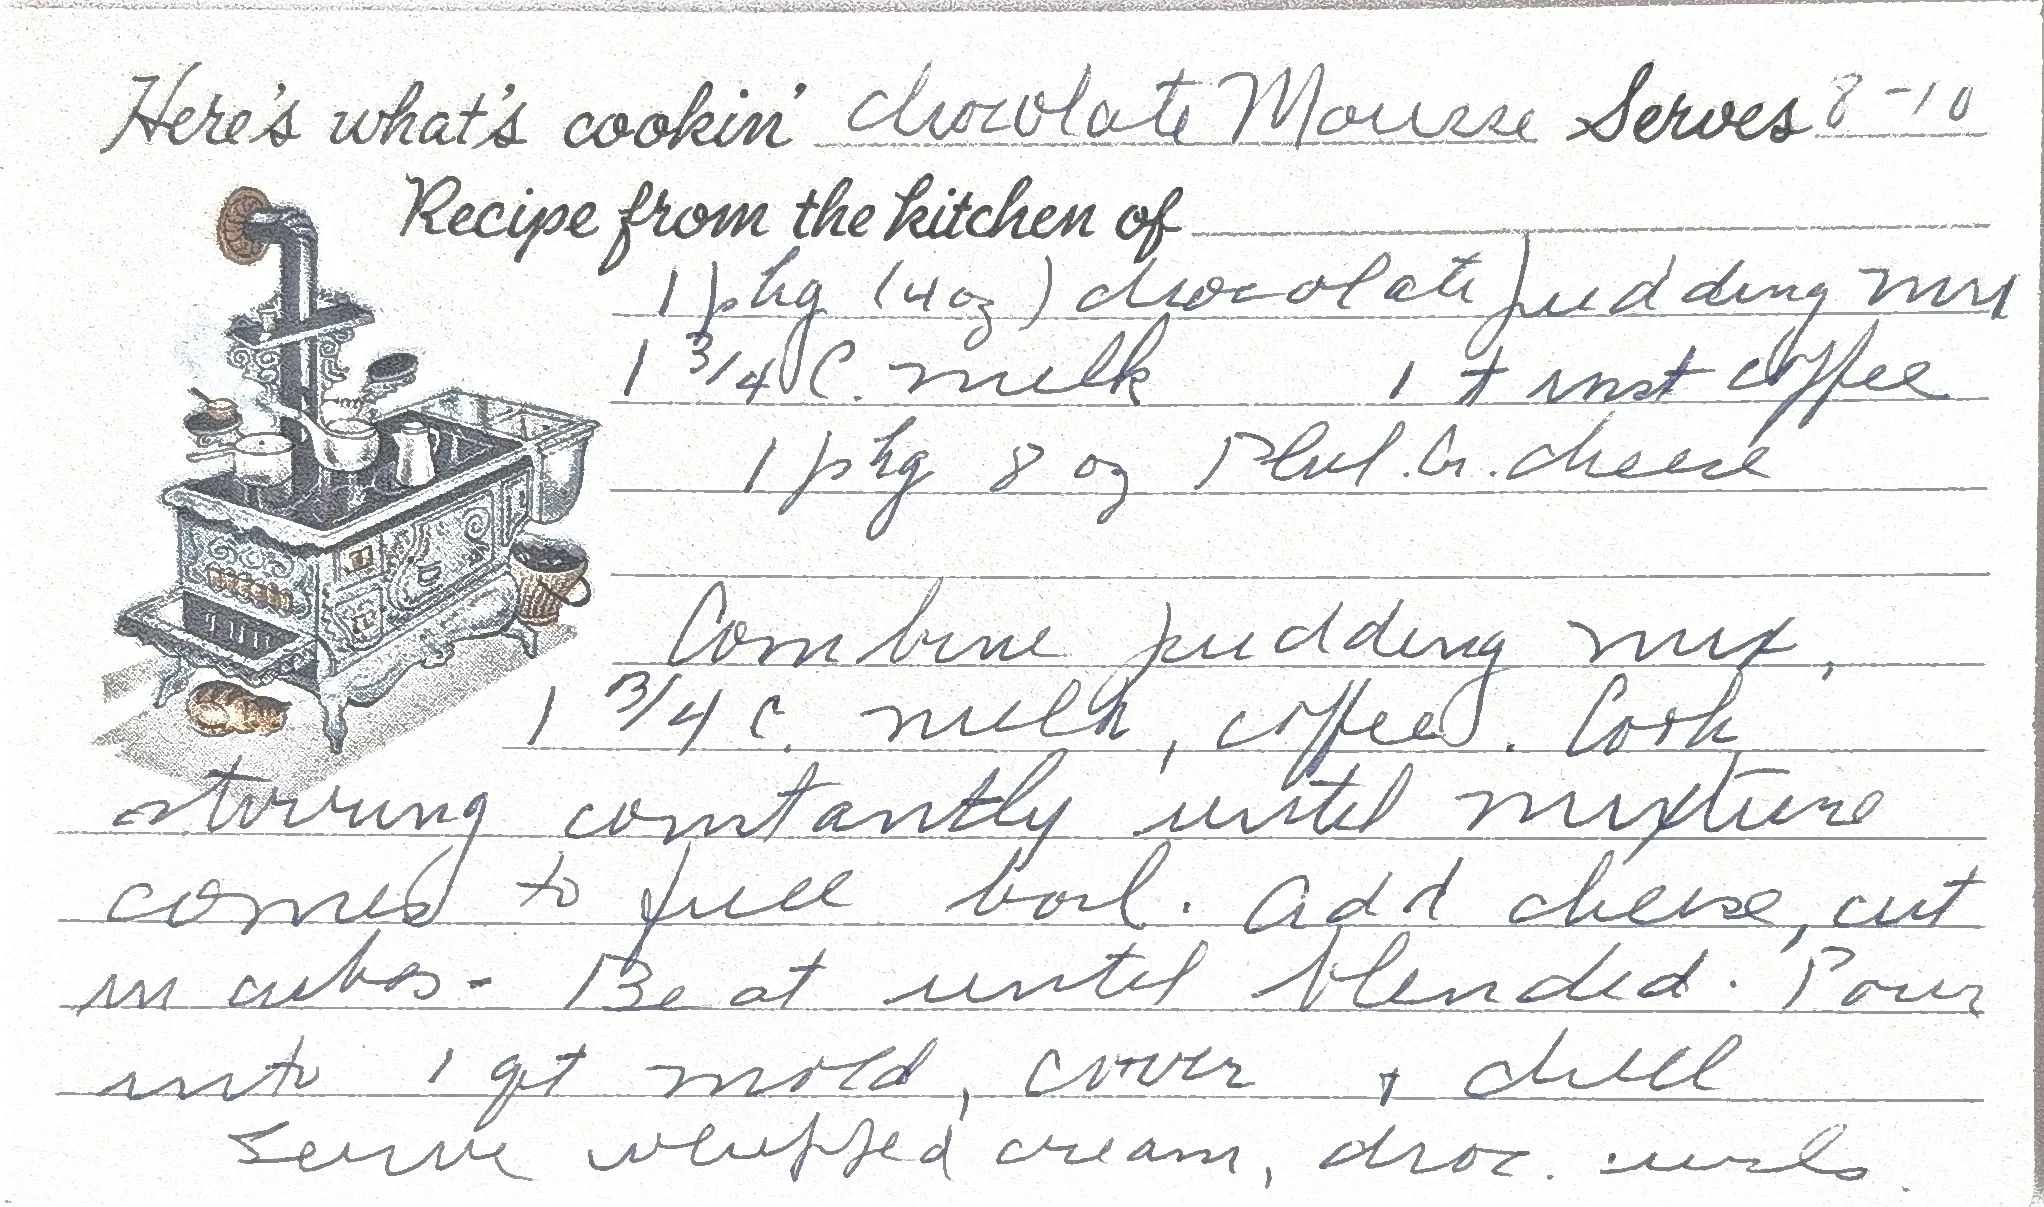 Here's what's cookin' Chocolate Mousse Serves 8-10
Recipe from the kitchen of
1 pkg (4 oz) chocolate pudding mix
1 3/4 C. milk 1 t inst coffee
1 pkg 8 oz Phil. Cr. cheese
Combine pudding mix,
1 3/4 C. milk, coffee. Cook
stirring constantly until mixture
comes to full boil. Add cheese, cut
in cubes - Beat until blended. Pour
into 1 qt mold, cover + chill
Serve whipped cream, choc. curls.